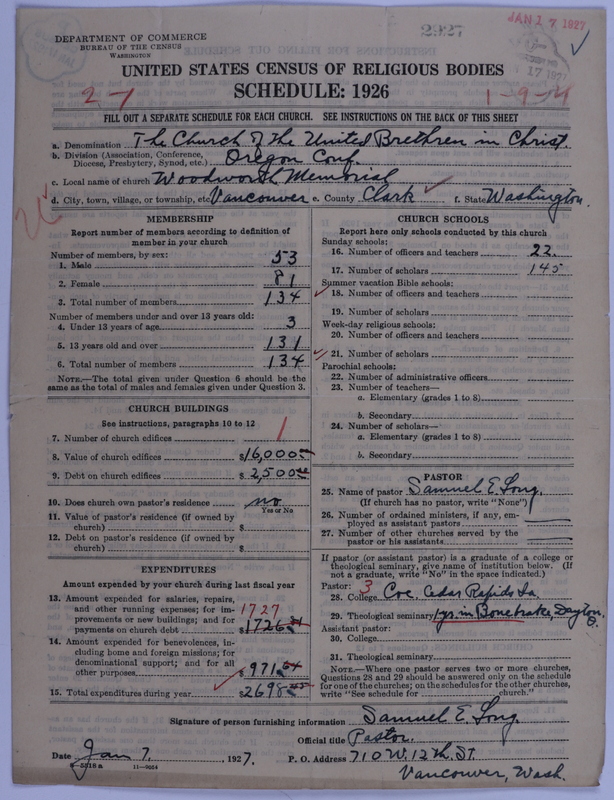 DEPARTMENT OF COMMERCE
BUREAU OF THE CENSUS
WASHINGTON
2927
JAN 17 1927
17 1927
UNITED STATES CENSUS OF RELIGIOUS BODIES
SCHEDULE: 1926
2-7
1-9-4
FILL OUT A SEPARATE SCHEDULE FOR EACH CHURCH. SEE INSTRUCTIONS ON THE BACK OF THIS SHEET
a. Denomination The Church of the United Brethren in Christ.
b. Division (Association, Conference, Diocese, Presbytery, Synod, etc.) Oregon Conf.
c. Local name of church Woodworth Memorial
d. City, town, village, or township, etc. Vancouver e. County Clark f. State Washington.
MEMBERSHIP
Report number of members according to definition of
member in your church
Number of members, by sex:
1. Male 53
2. Female 81
3. Total number of members 134
Number of members under and over 13 years old:
4. Under 13 years of age 3
5. 13 years old and over 131
6. Total number of members 134
NOTE.—The total given under Question 6 should be the
same as the total of males and females given under Question 3.
CHURCH BUILDINGS
See instructions, paragraphs 10 to 12
7. Number of church edifices 1
8. Value of church edifices $16,000.00
9. Debt on church edifices $2,500.00
10. Does church own pastor's residence no
Yes or No
11. Value of pastor's residence (if owned by
church) $
12. Debt on pastor's residence (if owned by
church) $
EXPENDITURES
Amount expended by your church during last fiscal year
13. Amount expended for salaries, repairs,
and other running expenses; for im-
provements or new buildings; and for 1727
payments on church debt $1726.81
14. Amount expended for benevolences, in-
cluding home and foreign missions; for
denominational support; and for all
other purposes $971.64
15. Total expenditures during year $2698.45
CHURCH SCHOOLS
Report here only schools conducted by this church
Sunday schools:
16. Number of officers and teachers 22.
17. Number of scholars 145
Summer vacation Bible schools:
18. Number of officers and teachers
19. Number of scholars
Week-day religious schools:
20. Number of officers and teachers
21. Number of scholars
Parochial schools:
22. Number of administrative officers
23. Number of teachers—
a. Elementary (grades 1 to 8)
b. Secondary
24. Number of scholars—
a. Elementary (grades 1 to 8)
b. Secondary
PASTOR
25. Name of pastor Samuel E. Long.
(If church has no pastor, write "None")
26. Number of ordained ministers, if any, em-
ployed as assistant pastors
27. Number of other churches served by the
pastor or his assistants
If pastor (or assistant pastor) is a graduate of a college or
theological seminary, give name of institution below. (If
not a graduate, write "No" in the space indicated.)
Pastor: 3
28. College Coe. Cedar Rapids Ia.
29. Theological seminary 1 yr. in Bonebrake, Dayton, O.
Assistant pastor:
30. College
31. Theological seminary
NOTE.—Where one pastor serves two or more churches,
Questions 28 and 29 should be answered only on the schedule
for one of the churches; on the schedules for the other churches,
write "See schedule for church."
Signature of person furnishing information Samuel E. Long.
Official title Pastor.
Date Jan 7. 1927. P. O. Address 710 W. 12th. ST.
Vancouver, Wash.
8-5518a 11-9024